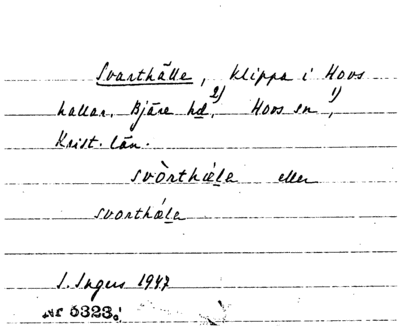 Svarthälle, klippa i Hovs
hallar. Bjäre hd 2), Hovs sn 1),
Krist. län.
svòrthǽla eller
svorthǽla
I. Ingers 1947
Nr 5323.